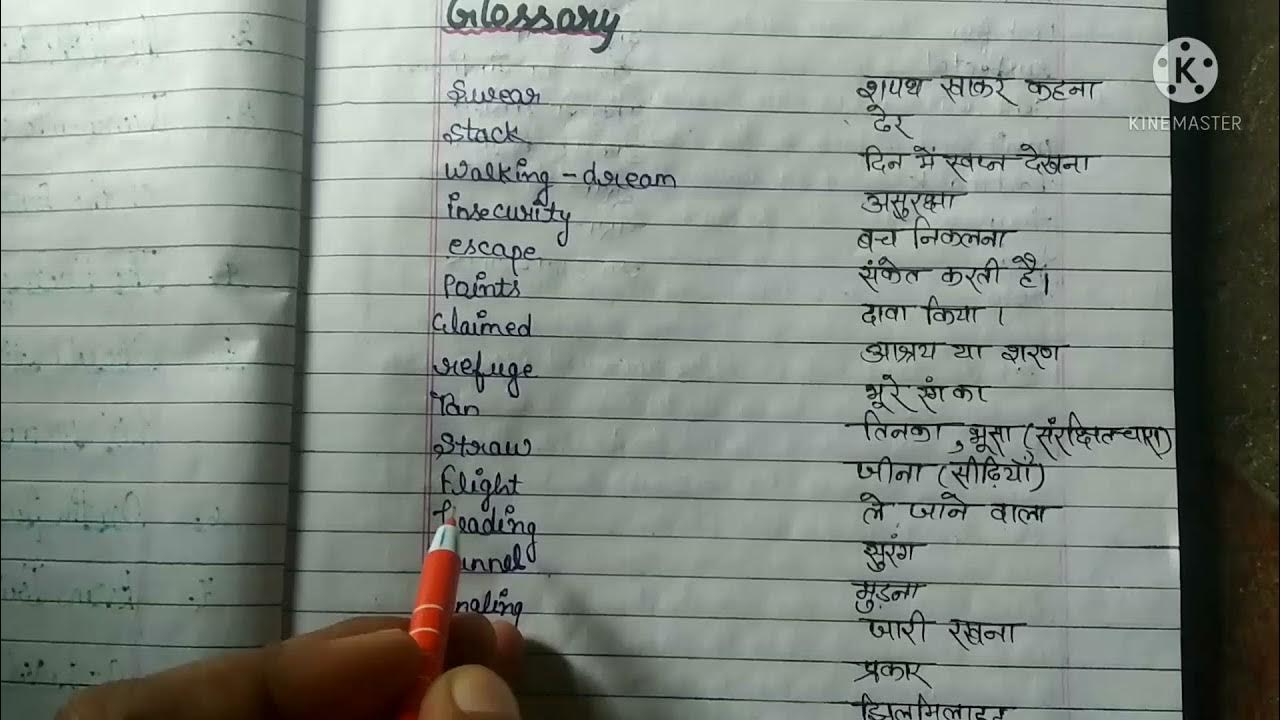 Glossary
Swear शपथ खाकर कहना
Stack ढेर
Walking-dream दिन में स्वप्न देखना
insecurity असुरक्षा
escape बच निकलना
Paints संकेत करती है।
Claimed दावा किया।
refuge आश्रय या शरण
Tan भूरे रंग का
Straw तिनका, भूसा (संरक्षित चारा)
flight जीना (सीढ़ियाँ)
leading ले जाने वाला
unnel सुरंग
ngling मुड़ना
जारी रखना
प्रकार
झिलमिलाहट
K
KINEMASTER